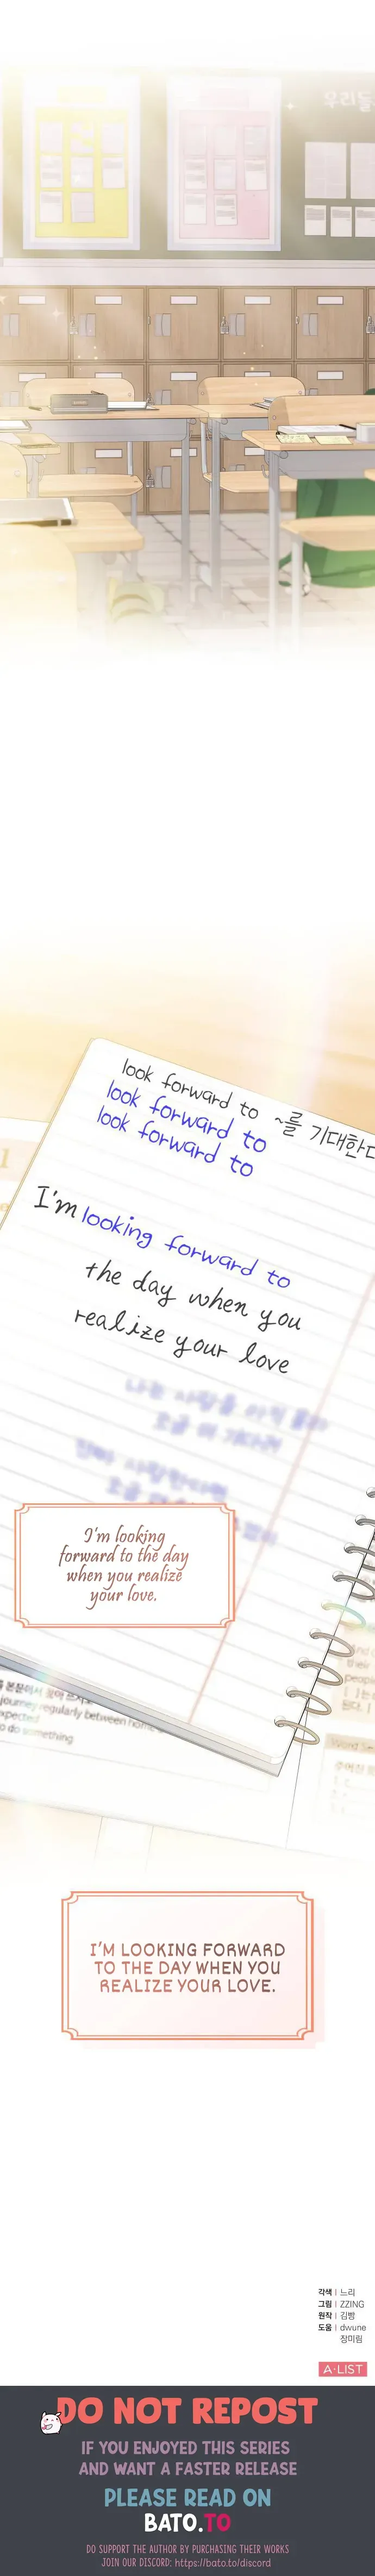 우리들
look forward to ~를 기대한다
look forward to
look forward to
I'm looking forward to
the day when you
realize your love
I'm looking
forward to the day
when you realize
your love.
journey regularly between home
expected
o do something
I'M LOOKING FORWARD
TO THE DAY WHEN YOU
REALIZE YOUR LOVE.
각색 | 느리
그림 | ZZING
원작 | 김빵
도움 | dwune
장미림
A-LIST
DO NOT REPOST
IF YOU ENJOYED THIS SERIES
AND WANT A FASTER RELEASE
PLEASE READ ON
BATO.TO
DO SUPPORT THE AUTHOR BY PURCHASING THEIR WORKS
JOIN OUR DISCORD: https://bato.to/discord